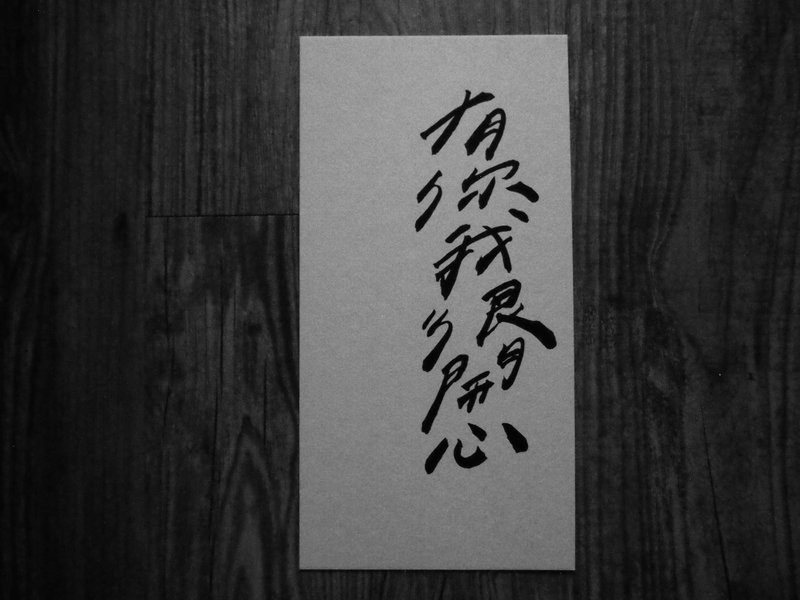 有你我很開心